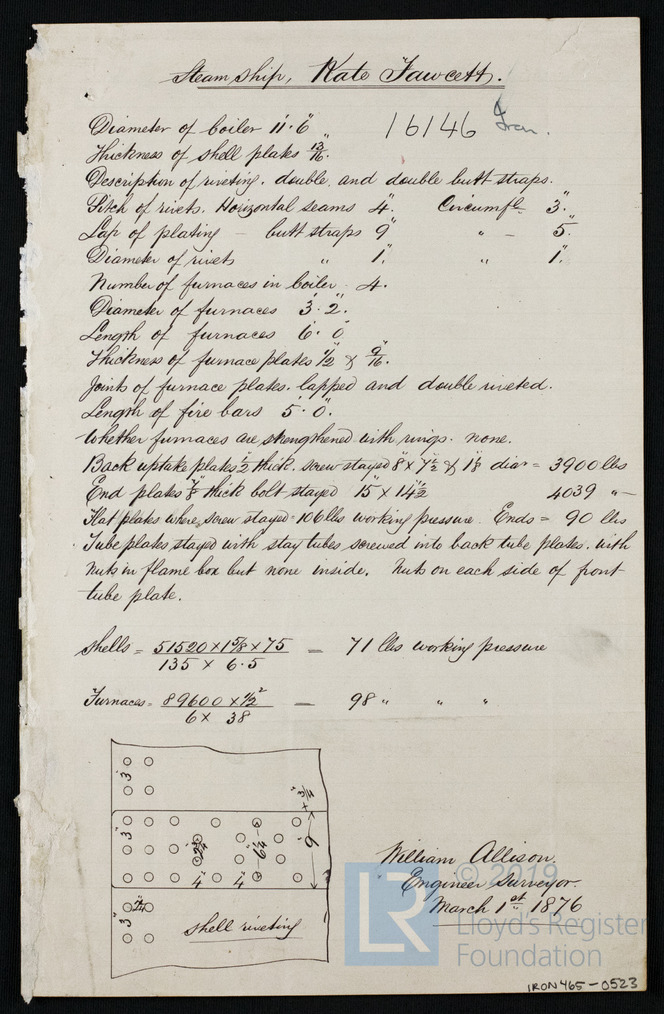 Steam ship, Kate Fawcett.
16146 Iron.
Diameter of boiler 11'. 6"
Thickness of shell plates 13/16".
Description of riveting. double, and double butt straps.
Pitch of rivets. Horizontal seams 4". Circumfl. 3".
Lap of plating — butt straps 9" " — 5".
Diameter of rivets " 1". " 1".
Number of furnaces in boiler. 4.
Diameter of furnaces 3'. 2".
Length of furnaces 6'. 0"
Thickness of furnace plates 1/2" & 9/16".
Joints of furnace plates. lapped and double riveted.
Length of fire bars 5'. 0".
Whether furnaces are strengthened with rings. none.
Back uptake plates 1/2" thick. screw stayed 8" x 7 1/2" & 1 1/8" diar = 3900 lbs
End plates 7/8" thick bolt stayed 15" x 14 1/2" 4039 " —
Flat plates where screw stayed = 106 lbs working pressure. Ends = 90 lbs
Tube plates stayed with stay tubes screwed into back tube plates. with
nuts in flame box but none inside. Nuts on each side of front
tube plate.
Shells = 51520 x 1 5/8 x 75 / 135 x 6.5 — 71 lbs working pressure
Furnaces = 89600 x 1/2² / 6 x 38 — 98 " " "
3"
3"
4" 4"
9"
3"
shell riveting
William Allison.
Engineer Surveyor.
March 1st 1876
LR
© 2019
Lloyd's Register
Foundation
IRON465-0523